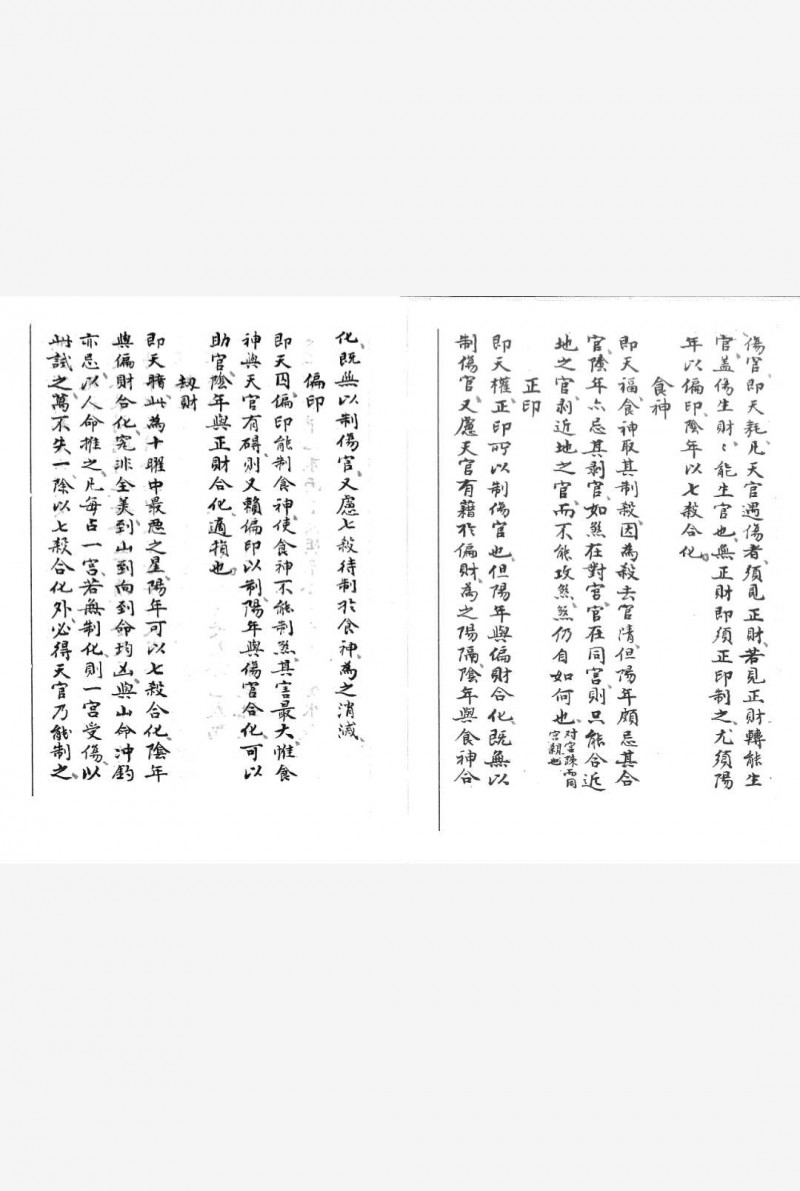 傷官即天耗、凡天官遇傷者、須見正財、若見正財轉能生
官、盖傷生財、〻能生官也、無正財即須正印制之、尤須陽
年以偏印、陰年以七殺合化。
食神
即天福、食神取其制殺、因為殺去官清、但陽年頗忌其合
官、陰年亦忌其剥官、如煞在對宮、官在同宮、則只能合近
地之官、剥近地之官、而不能攻煞、煞仍自如何也、对宮疎而同宮親也
正印
即天權、正印所以制傷官也、但陽年與偏財合化、既無以
制傷官、又慮天官有藉於偏財為之陽隔、陰年與食神合
化、既無以制傷官、又慮七殺待制於食神為之消滅、
偏印
即天囚、偏印能制食神、使食神不能制煞、其害最大、惟食
神與天官有碍、則又賴偏印以制、陽年與傷官合化、可以
助官、陰年與正財合化、適損也。
刼財
即天暗、此為十曜中最惡之星、陽年可以七殺合化、陰年
與偏財合化、究非全美、到山到向到命均凶、與山命冲釣
亦忌、以人命推之、凡每占一宮、若無制化、則一宮受傷、以
此試之、萬不失一、除以七殺合化外、必得天官乃能制之